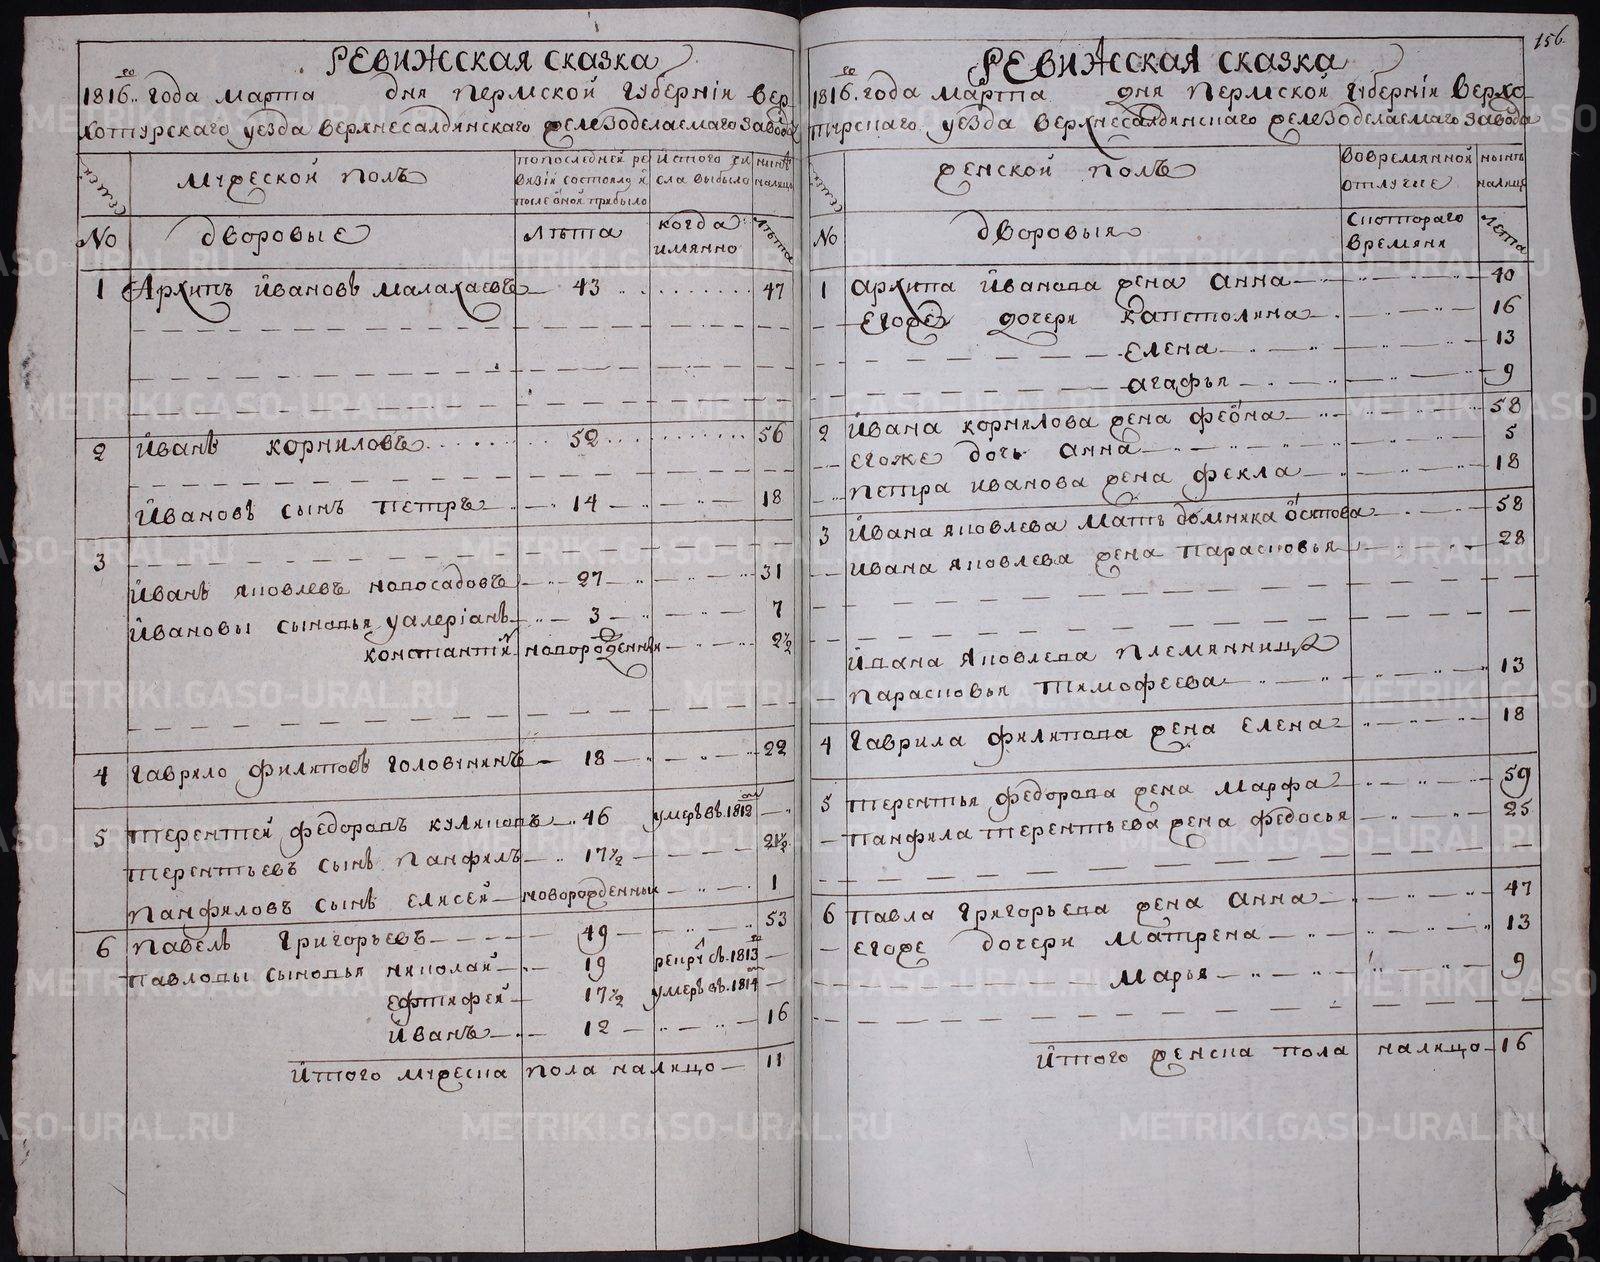 РЕВИЖСКАЯ СКАЗКА
1816го года марта дня Пермской губерніи Вер
хотурскаго уезда Верхнесалдинскаго железоделаемаго завода
семей
мужеской полъ
попоследней ре
визіи состояло и
после оной прибыло
изтого чи
сла выбыло
нынѣ
налицо
No
дворовые
лѣта
когда
имянно
лѣта
1 Архипъ Ивановъ Малахаевъ 43 47
2 Иванъ Корниловъ 52 56
Ивановъ сынъ Петръ 14 18
3
Иванъ Яковлевъ Новосадовъ 27 31
Ивановы сыновья Уалеріанъ 3 7
Константинъ новорожденныи 2½
4 Гаврило Филиповъ Головинъ 18 22
5 Терентей Федоровъ Куликовъ 46 умеръ въ 1812м
Терентьевъ сынъ Панфилъ 17½ 21½
Панфиловъ сынъ Елисей новорожденныи 1
6 Павелъ Григорьевъ 49 53
Павловы сыновья Николай 19 рекрутъ въ 1813го
Ефтифей 17½ умеръ въ 1814м
Иванъ 12 16
Итого мужеска пола налицо 11
156
РЕВИЖСКАЯ СКАЗКА
1816го года марта дня Пермской губерніи Верхо
турскаго уезда Верхнесалдинскаго железоделаемаго завода
семей
женской полъ
вовремянной
отлучке
нынѣ
налицо
No
дворовыя
Скотораго
времяни
лета
1 Архипа Иванова жена Анна 40
Егоже дочери Капетолина 16
Елена 13
Агафья 9
2 Ивана Корнилова жена Феона 58
Егоже дочь Анна 5
Петра Иванова жена Фекла 18
3 Ивана Яковлева мать Домника Осипова 58
Ивана Яковлева жена Парасковья 28
Ивана Яковлева племянница
Парасковья Тимофеева 13
4 Гаврила Филипова жена Елена 18
5 Терентья Федорова жена Марфа 59
Панфила Терентьева жена Федосья 25
6 Павла Григорьева жена Анна 47
Егоже дочери Матрена 13
Марья 9
Итого женска пола налицо 16
METRIKI.GASO-URAL.RU